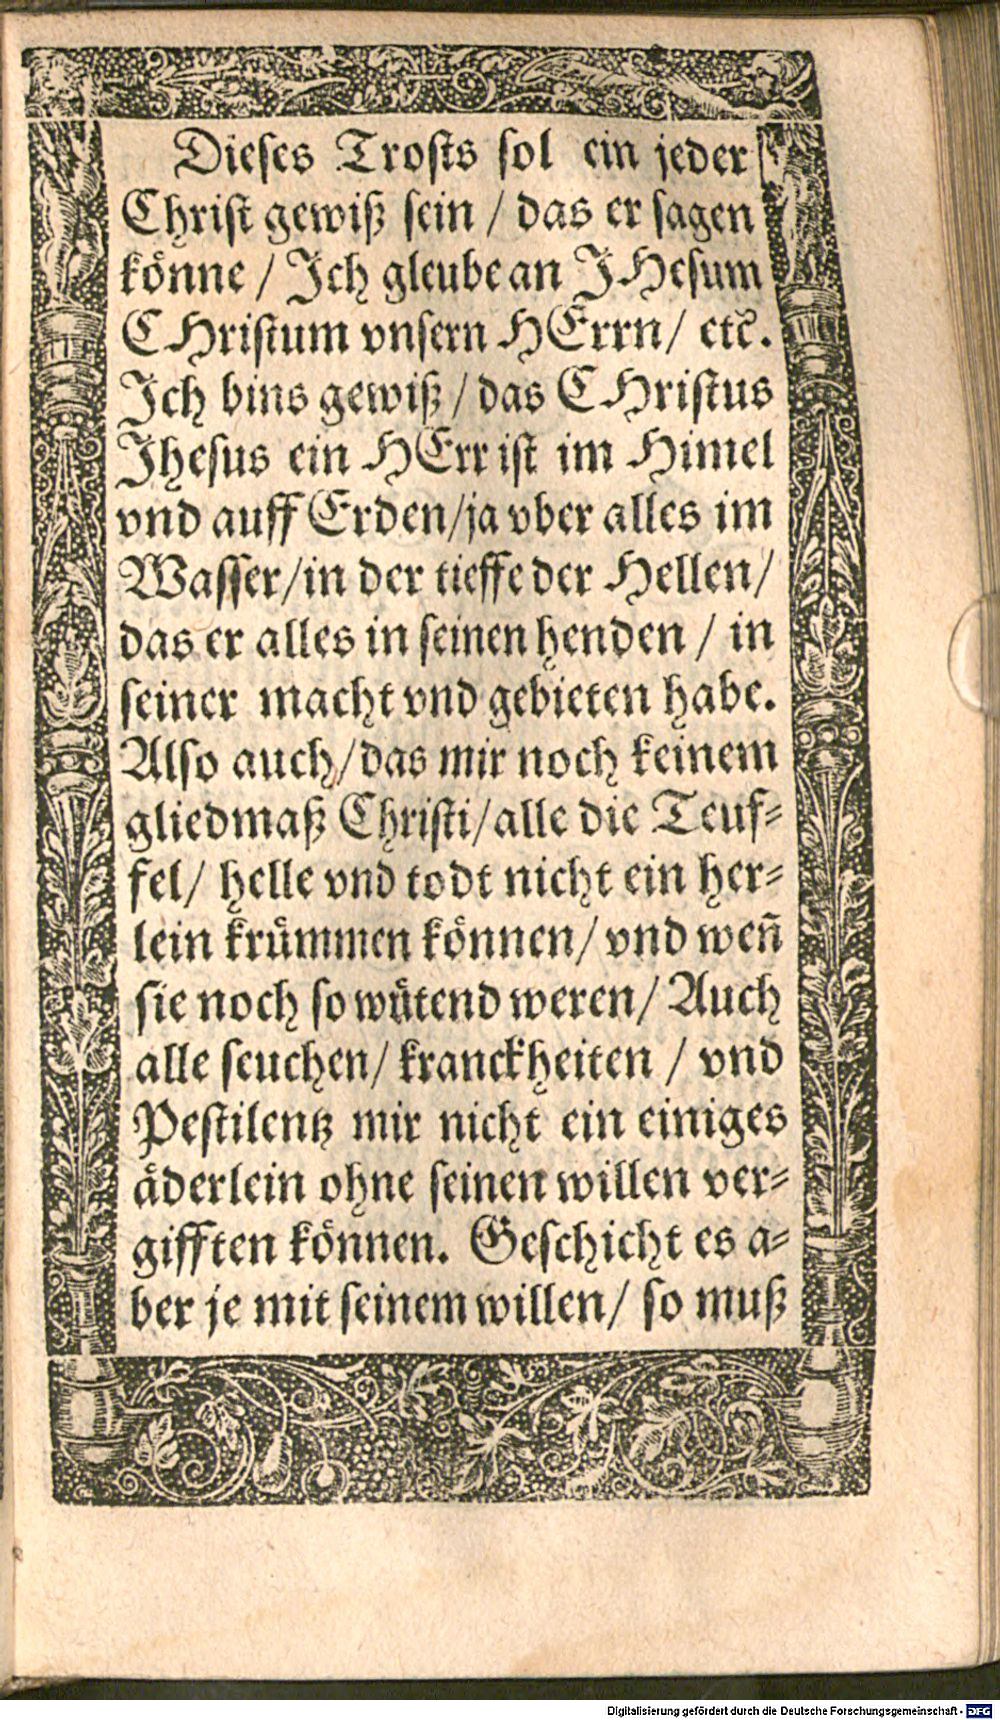 Dieses Trosts sol ein jeder
Christ gewiß sein / das er sagen
könne / Ich gleube an JHesum
CHristum vnsern HErrn / etc̃.
Ich bins gewiß / das CHristus
Jhesus ein HErr ist im Himel
vnd auff Erden / ja vber alles im
Wasser / in der tieffe der Hellen /
das er alles in seinen henden / in
seiner macht vnd gebieten habe.
Also auch / das mir noch keinem
gliedmaß Christi / alle die Teuf-
fel / helle vnd todt nicht ein her-
lein krümmen können / vnd weñ
sie noch so wütend weren / Auch
alle seuchen / kranckheiten / vnd
Pestilentz mir nicht ein einiges
äderlein ohne seinen willen ver-
gifften können. Geschicht es a-
ber je mit seinem willen / so muß
Digitalisierung gefördert durch die Deutsche Forschungsgemeinschaft - DFG